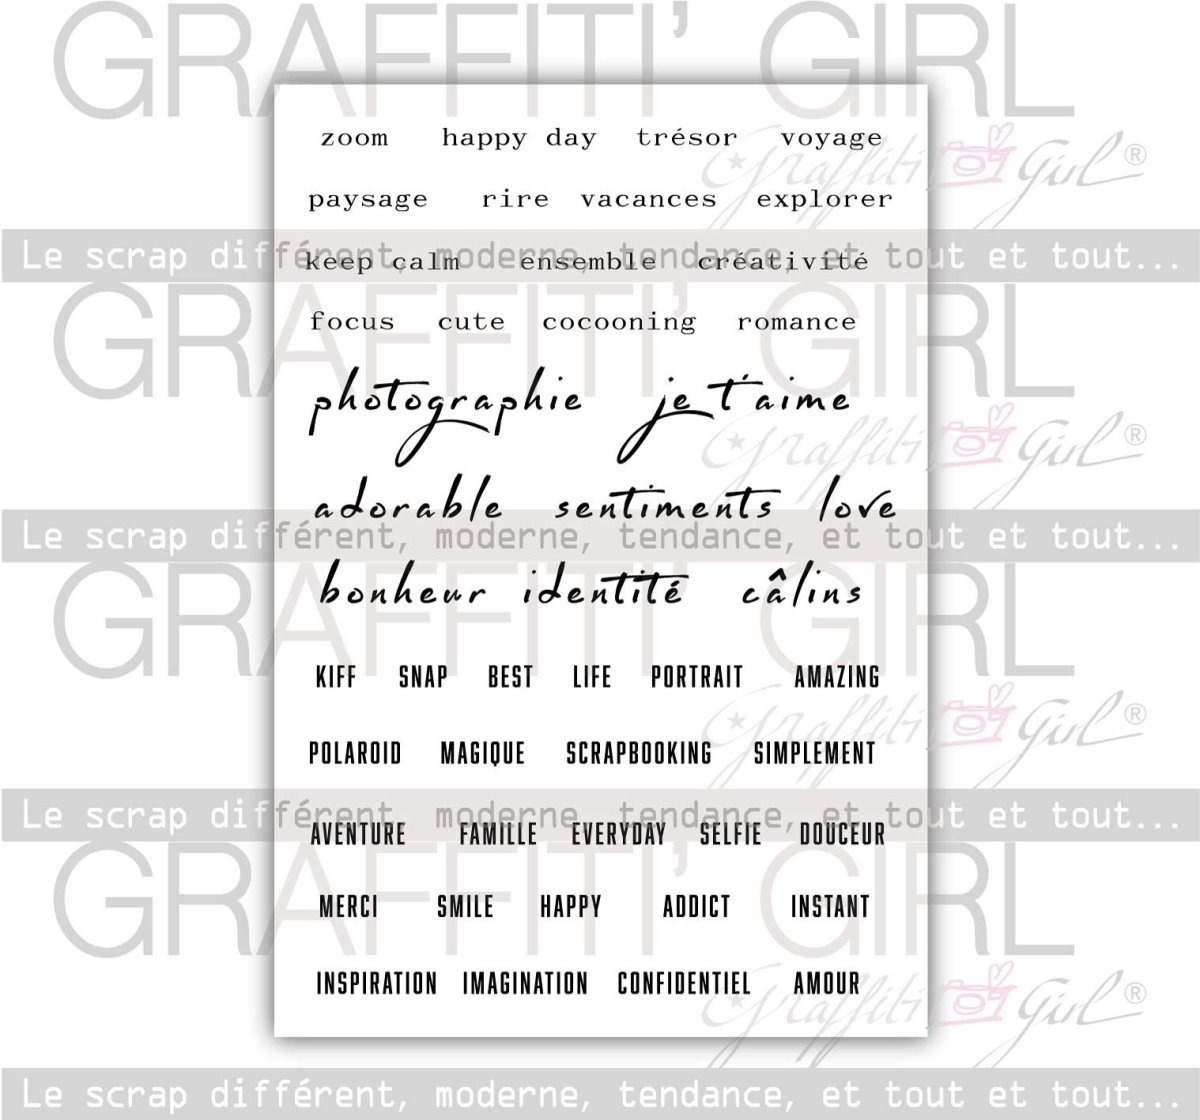 GRAFFITI' GIRL
zoom happy day trésor voyage
Graffiti Girl®
paysage rire vacances explorer
Le scrap différent, moderne, tendance, et tout et tout...
keep calm ensemble créativité
GRAFFITI' GIRL
focus cute cocooning romance
photographie je t'aime
Graffiti Girl®
adorable sentiments love
Le scrap différent, moderne, tendance, et tout et tout...
bonheur identité câlins
GRAFFITI' GIRL
KIFF SNAP BEST LIFE PORTRAIT AMAZING
Graffiti Girl®
POLAROID MAGIQUE SCRAPBOOKING SIMPLEMENT
Le scrap différent, moderne, tendance, et tout et tout...
AVENTURE FAMILLE EVERYDAY SELFIE DOUCEUR
GRAFFITI' GIRL
MERCI SMILE HAPPY ADDICT INSTANT
INSPIRATION IMAGINATION CONFIDENTIEL AMOUR
Graffiti Girl®
Le scrap différent, moderne, tendance, et tout et tout...